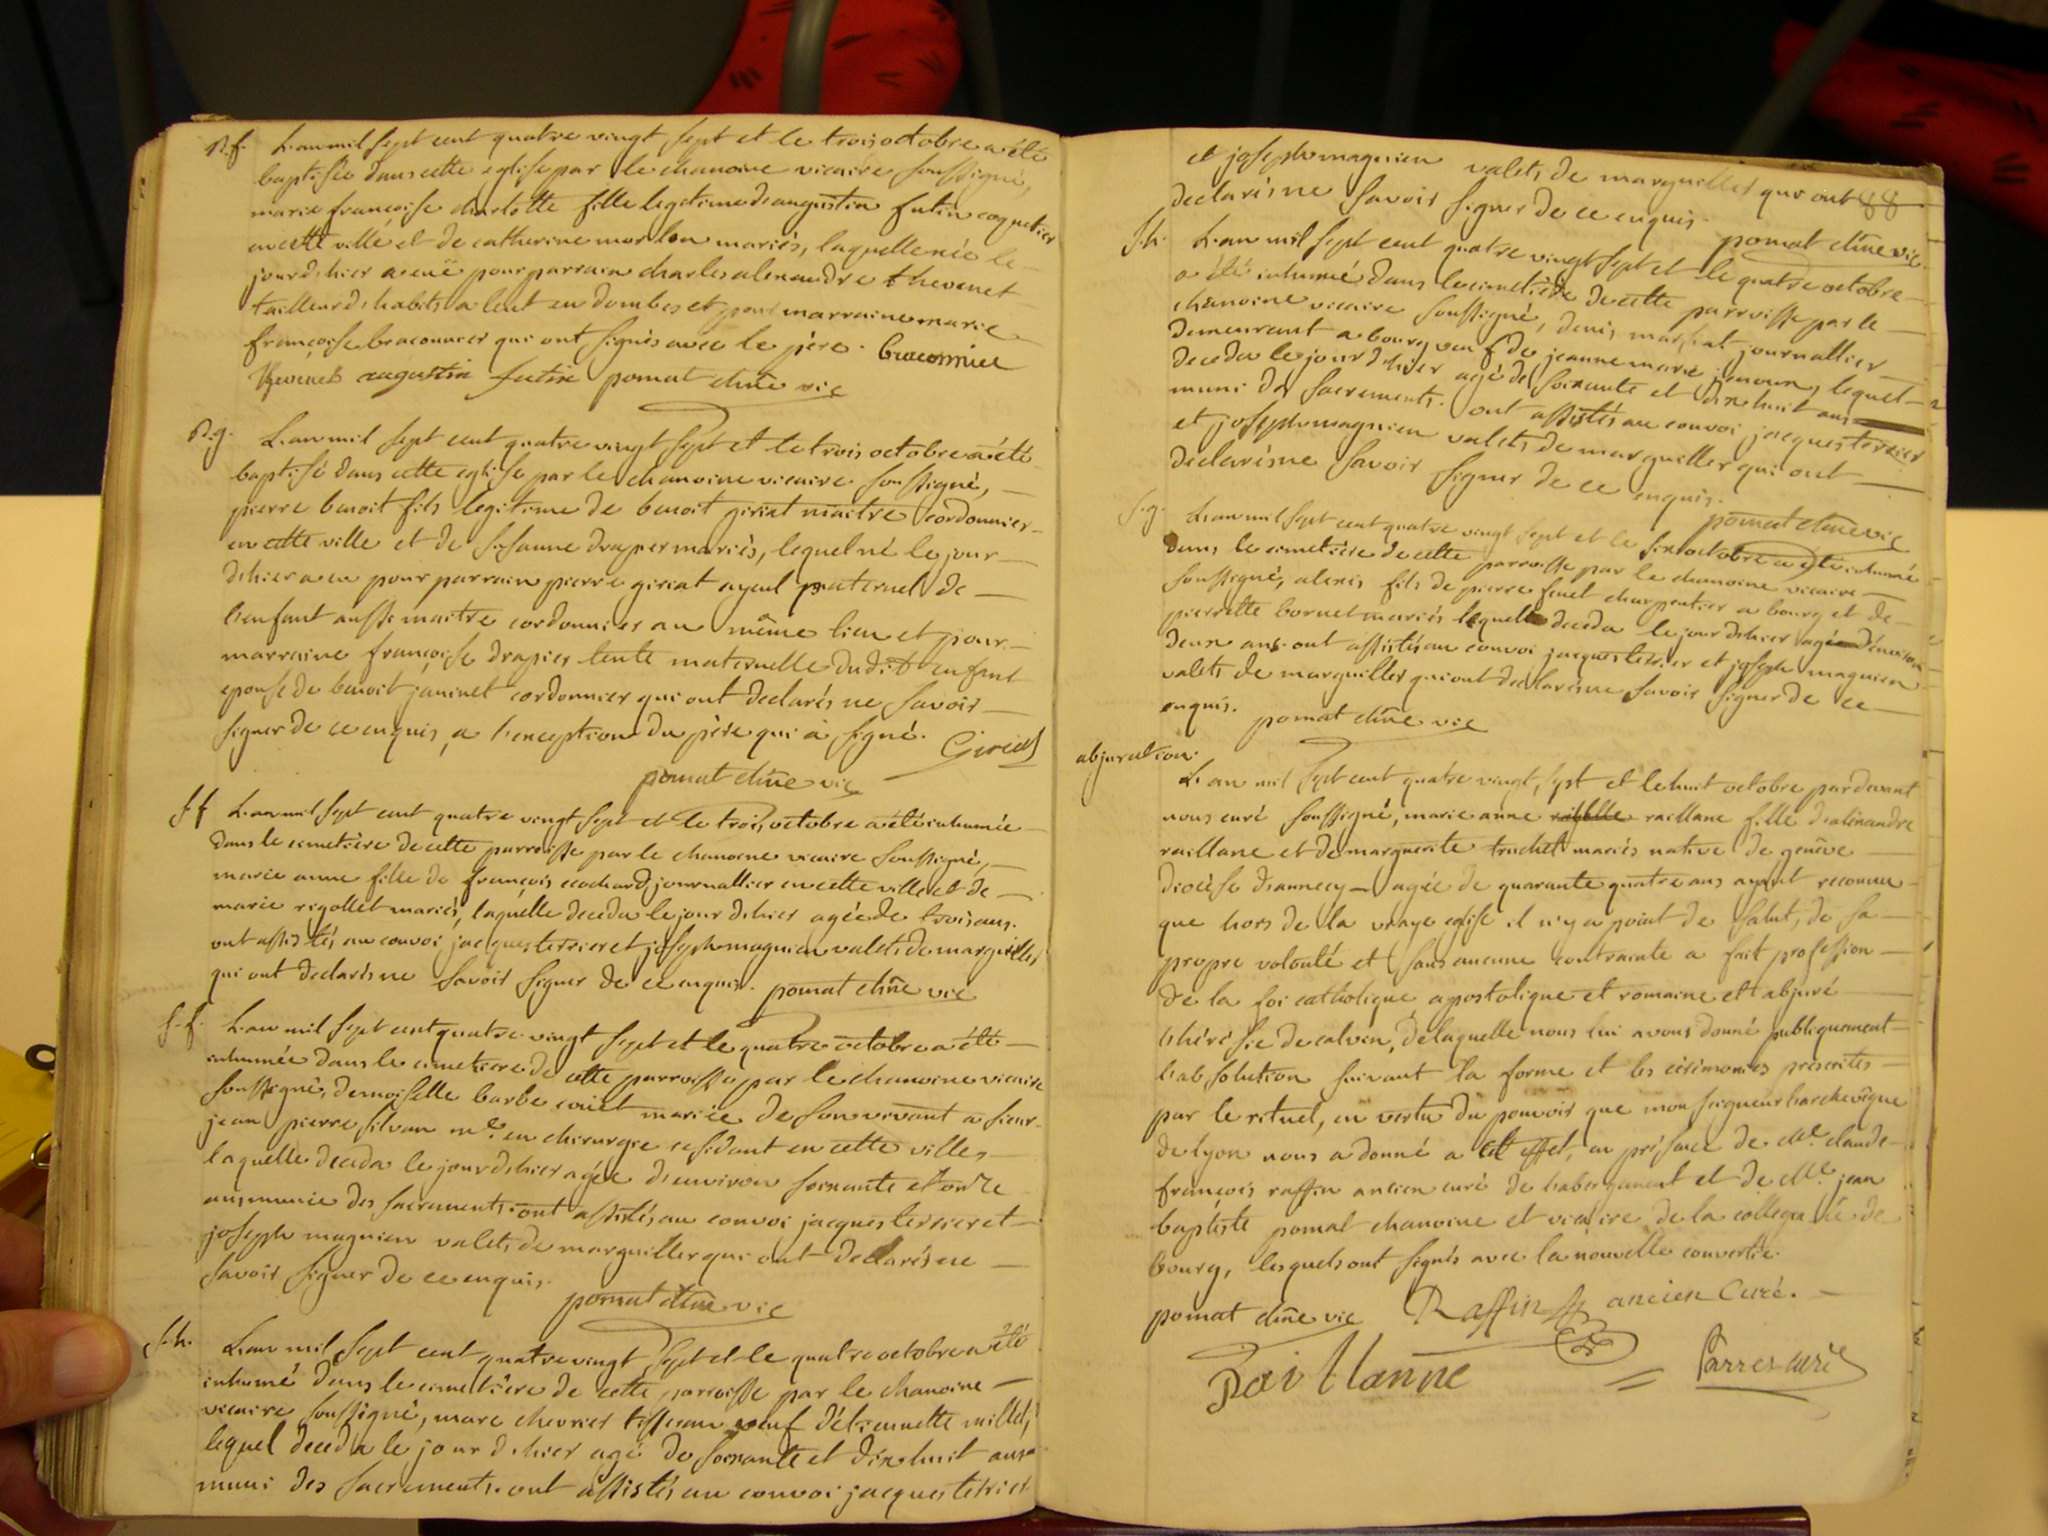 B.f. L'an mil sept cent quatre vingt sept et le trois octobre a été
baptisée dans cette eglise par le chanoine vicaire soussigné,
marie françoise charlotte fille legitime d'augustin futin coquetier
en cette ville et de catherine morlon mariés, laquelle née le
jour d'hier a euë pour parrain charles alexandre thevenet
tailleur d'habits a lent en dombes et pour marraine marie
françoise braconnier qui ont signés avec le père. braconnier
thevenet augustin futin pomat chne vic
B.g. L'an mil sept cent quatre vingt sept et le trois octobre a été
baptisé dans cette eglise par le chanoine vicaire soussigné,
pierre benoit fils legitime de benoit giriat maitre cordonnier
en cette ville et de susanne drapier mariés, lequel né le jour
d'hier a eu pour parrain pierre giriat ayeul paternel de
l'enfant aussi maitre cordonnier au même lieu et pour
marraine françoise drapier tente maternelle dudit enfant
epouse de benoit janinet cordonnier qui ont declarés ne savoir
signer de ce enquis, a l'exception du père qui a signé. Giriat
pomat chne vic
S.f L'an mil sept cent quatre vingt sept et le trois octobre a été inhumée
dans le cimetière de cette parroisse par le chanoine vicaire soussigné,
marie anne fille de françois cochard journallier en cette ville et de
marie rigollet mariés, laquelle deceda le jour d'hier agée de trois ans.
ont assistés au convoi jacques terrier et joseph magnien valets de marguiller
qui ont declarés ne savoir signer de ce enquis. pomat chne vic
S.f. L'an mil sept cent quatre vingt sept et le quatre octobre a été
inhumée dans le cimetiere de cette parroisse par le chanoine vicaire
soussigné, demoiselle barbe mariée de son vivant a sieur
jean pierre silvan me. en chirurgie residant en cette ville
laquelle deceda le jour d'hier agée d'environ soixante et onze
ans munie des sacrements. ont assistés au convoi jacques terrier et
joseph magnien valets de marguiller qui ont declarés ne
savoir signer de ce enquis.
pomat chne vic
S.h. L'an mil sept cent quatre vingt sept et le quatre octobre a été
inhumé dans le cimetière de cette parroisse par le chanoine
vicaire soussigné, marc chevrier tisseran veuf d'étiennette millet,
lequel deceda le jour d'hier agé de soixante et dix huit ans
muni des sacrements. ont assistés au convoi jacques terrier
et joseph magnien valets de marguiller qui ont 88
declarés ne savoir signer de ce enquis. pomat chne vic
S.h. L'an mil sept cent quatre vingt sept et le quatre octobre
a été inhumé dans le cimetière de cette parroisse par le
chanoine vicaire soussigné, denis journallier
demeurant a bourg veuf de jeanne marie lequel
deceda le jour d'hier agé de soixante et dix huit ans
muni des sacrements. ont assistés au convoi jacques terrier
et joseph magnien valets de marguiller qui ont
declarés ne savoir signer de ce enquis.
pomat chne vic
S.g. L'an mil sept cent quatre vingt sept et le six octobre a été inhumé
dans le cimetière de cette parroisse par le chanoine vicaire
soussigné, alexis fils de pierre charpentier a bourg et de
pierrette bornet mariés lequel deceda le jour d'hier agé d'environ
deux ans. ont assistés au convoi jacques terrier et joseph magnien
valets de marguiller qui ont declarés ne savoir signer de ce
enquis. pomat chne vic
abjuration.
L'an mil sept cent quatre vingt, sept et le huit octobre par devant
nous curé soussigné, marie anne raillane fille d'alexandre
raillane et de marguerite truchet mariés native de genève
diocèse d'annecy agée de quarante quatre ans ayant reconnu
que hors de la vraye eglise il n'y a point de salut, de sa
propre volonté et sans aucune contrainte a fait profession
de la foi catholique apostolique et romaine et abjuré
l'hérésie de calvin, de laquelle nous lui avons donné publiquement
l'absolution suivant la forme et les cérémonies prescrites
par le rituel, en vertu du pouvoir que mon seigneur l'archevêque
de lyon nous a donné a cet effet, en présance de Me. claude
françois raffin ancien curé de l'abergement et de Me. jean
baptiste pomat chanoine et vicaire de la collegiale de
bourg, lesquels ont signés avec la nouvelle convertie.
pomat chne vic Raffin ancien Curé.
Raillanne Parres curé